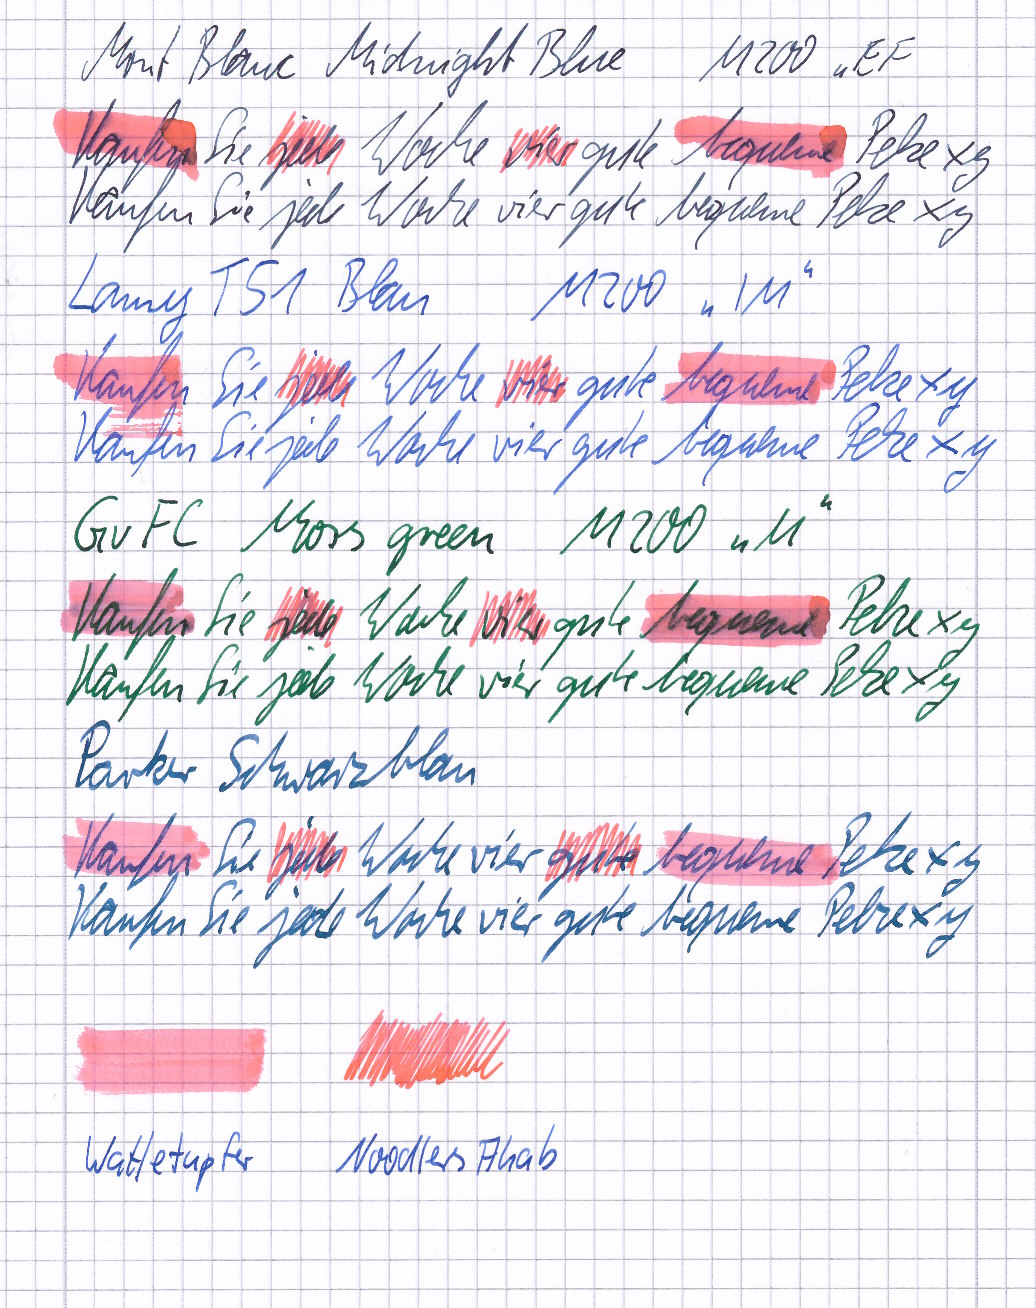 Mont Blanc Midnight Blue M200 „EF
Kaufen Sie jede Woche vier gute bequeme Pelze xy
Kaufen Sie jede Woche vier gute bequeme Pelze xy
Lamy T51 Blau M200 „1M“
Kaufen Sie jede Woche vier gute bequeme Pelze xy
Kaufen Sie jede Woche vier gute bequeme Pelze xy
GvFC Moss green M200 „M“
Kaufen Sie jede Woche vier gute bequeme Pelze xy
Kaufen Sie jede Woche vier gute bequeme Pelze xy
Parker Schwarzblau
Kaufen Sie jede Woche vier gute bequeme Pelze xy
Kaufen Sie jede Woche vier gute bequeme Pelze xy
Wattetupfer Noodlers Ahab